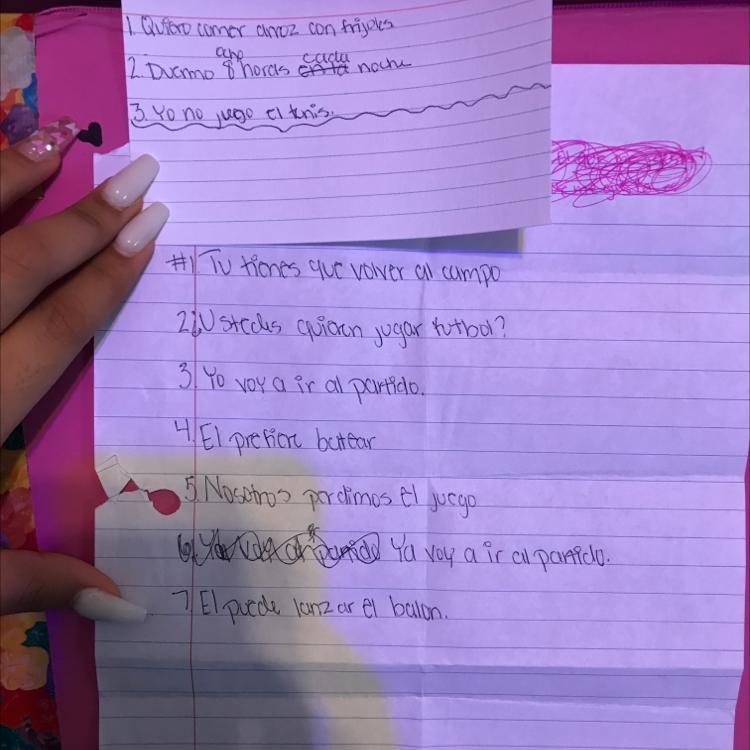 1. Quiero comer arroz con frijoles
ocho cada
2. Duermo 8 horas noche
3. Yo no juego el tenis.
#1 Tu tienes que volver al campo
2. ¿Ustedes quieren jugar futbol?
3. Yo voy a ir al partido.
4. El prefiere batear
5. Nosotros perdimos el juego
6. Ya voy a ir al partido.
7. El puede lanzar el balon.